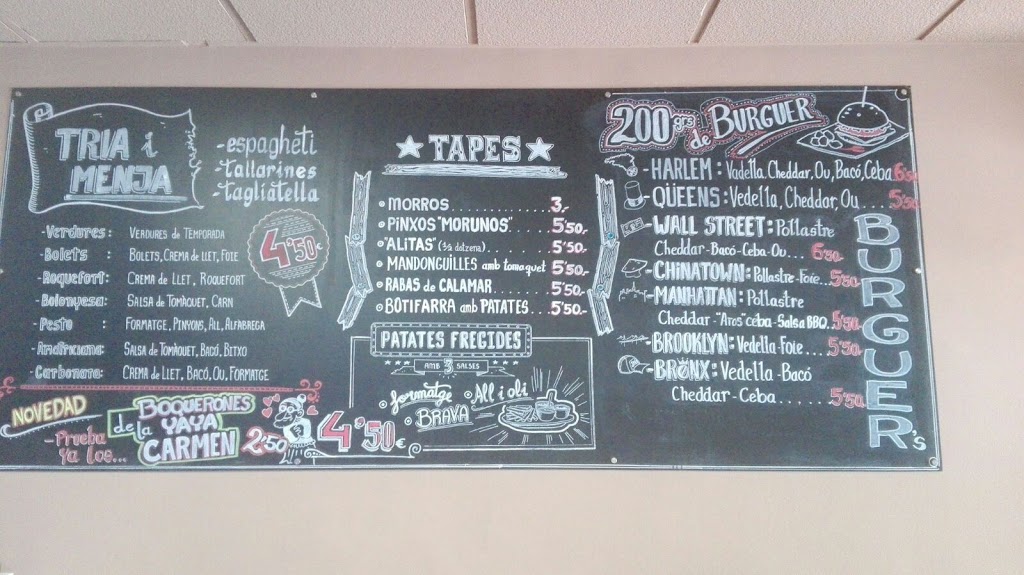 TRIA i
MENJA
-espagheti
-tallarines
-tagliatella
-Verdures: VERDURES de TEMPORADA
-Bolets: BOLETS, CREMA de LLET, FOIE
-Roquefort: CREMA de LLET, ROQUEFORT
-Bolonyesa: SALSA de TOMÀQUET, CARN
-Pesto: FORMATGE, PINYONS, ALL, ALFÀBREGA
-Amatriciana: SALSA de TOMÀQUET, BACÓ, BITXO
-Carbonara: CREMA de LLET, BACÓ, OU, FORMATGE
4'50€
NOVEDAD
-Prueba
ya los...
BOQUERONES
de la YAYA
CARMEN 2'50
★ TAPES ★
MORROS............3,-
PiNXOS "MORUNOS".......5'50-
"ALiTAS" (½ dotzena)........5'50-
MANDONGUILLES amb tomaquet 5'50-
RABAS de CALAMAR......5'50-
BOTIFARRA amb PATATES...5'50-
PATATES FREGIDES
AMB 3 SALSES
formatge
All i oli
BRAVA
4'50€
200 grs de BURGUER
-HARLEM: Vadella, Cheddar, Ou, Bacó, Ceba 6'50
-QÜEENS: Vedella, Cheddar, Ou....5'50
-WALL STREET: Pollastre
Cheddar-Bacó-Ceba-Ou...6'50
-CHiNATOWN: Pollastre-Foie...5'50
-MANHATTAN: Pollastre
Cheddar-"Aros" ceba-Salsa BBQ.5'50
-BROOKLYN: Vedella-Foie....5'50
-BRONX: Vedella-Bacó
Cheddar-Ceba.......5'50
BURGUER's